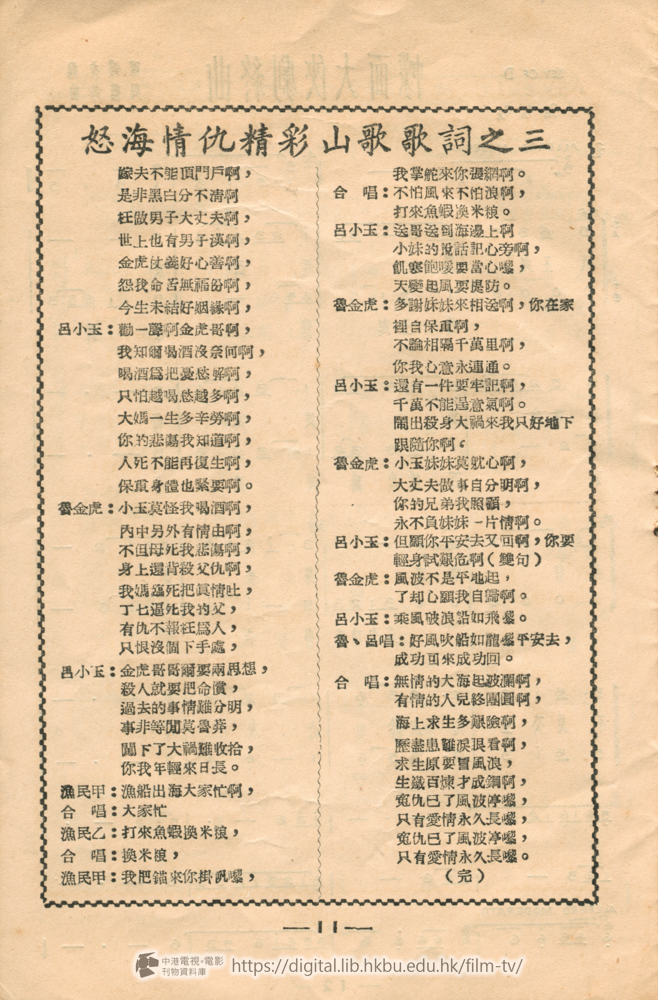 怒海情仇精彩山歌歌詞之三
嫁夫不能頂門戶啊，
是非黑白分不清啊
枉做男子大丈夫啊，
世上也有男子漢啊，
金虎仗義好心善啊，
怨我命苦無福份啊，
今生未結好姻緣啊，
呂小玉：勸一聲啊金虎哥啊，
我知爾喝酒沒奈何啊，
喝酒爲把憂愁解啊，
只怕越喝愁越多啊，
大媽一生多辛勞啊，
你的悲傷我知道啊，
人死不能再復生啊，
保重身體也緊要啊。
魯金虎：小玉莫怪我喝酒啊，
內中另外有情由啊，
不但母死我悲傷啊，
身上還背殺父仇啊，
我媽臨死把眞情吐，
丁七逼死我的父，
有仇不報枉爲人，
只恨沒個下手處，
呂小玉：金虎哥哥爾要兩思想，
殺人就要把命償，
過去的事情難分明，
事非等閒莫魯莽，
闖下了大禍難收拾，
你我年輕來日長。
漁民甲：漁船出海大家忙啊，
合　唱：大家忙
漁民乙：打來魚蝦換米粮，
合　唱：換米粮，
漁民甲：我把錨來你掛帆囉，
我掌舵來你張網啊。
合　唱：不怕風來不怕浪啊。
打來魚蝦換米粮。
呂小玉：送哥送到海邊上啊
小妹的說話記心旁啊，
飢寒飽暖要當心囉，
天變起風要提防。
魯金虎：多謝妹妹來相送啊，你在家
裡自保重啊，
不論相隔千萬里啊，
你我心意永連通。
呂小玉：還有一件要牢記啊，
千萬不能逞意氣啊。
鬧出殺身大禍來我只好地下
跟隨你啊。
魯金虎：小玉妹妹莫躭心啊，
大丈夫做事自分明啊，
你的兄弟我照顧，
永不負妹妹一片情啊。
呂小玉：但願你平安去又回啊，你要
輕身試艱危啊（雙句）
魯金虎：風波不是平地起，
了却心願我自歸啊。
呂小玉：乘風破浪船如飛囉。
魯、呂唱：好風吹船如龍囉平安去，
成功回來成功回。
合　唱：無情的大海起波瀾啊，
有情的人兒終團圓啊，
海上求生多艱險啊，
歷盡患難淚眼看啊，
求生原要冒風浪，
生鐵百煉才成鋼啊，
寃仇已了風波渟囉，
只有愛情永久長囉，
寃仇已了風波渟囉，
只有愛情永久長囉。
（完）
—11—
中港電視・電影
刊物資料庫
https://digital.lib.hkbu.edu.hk/film-tv/